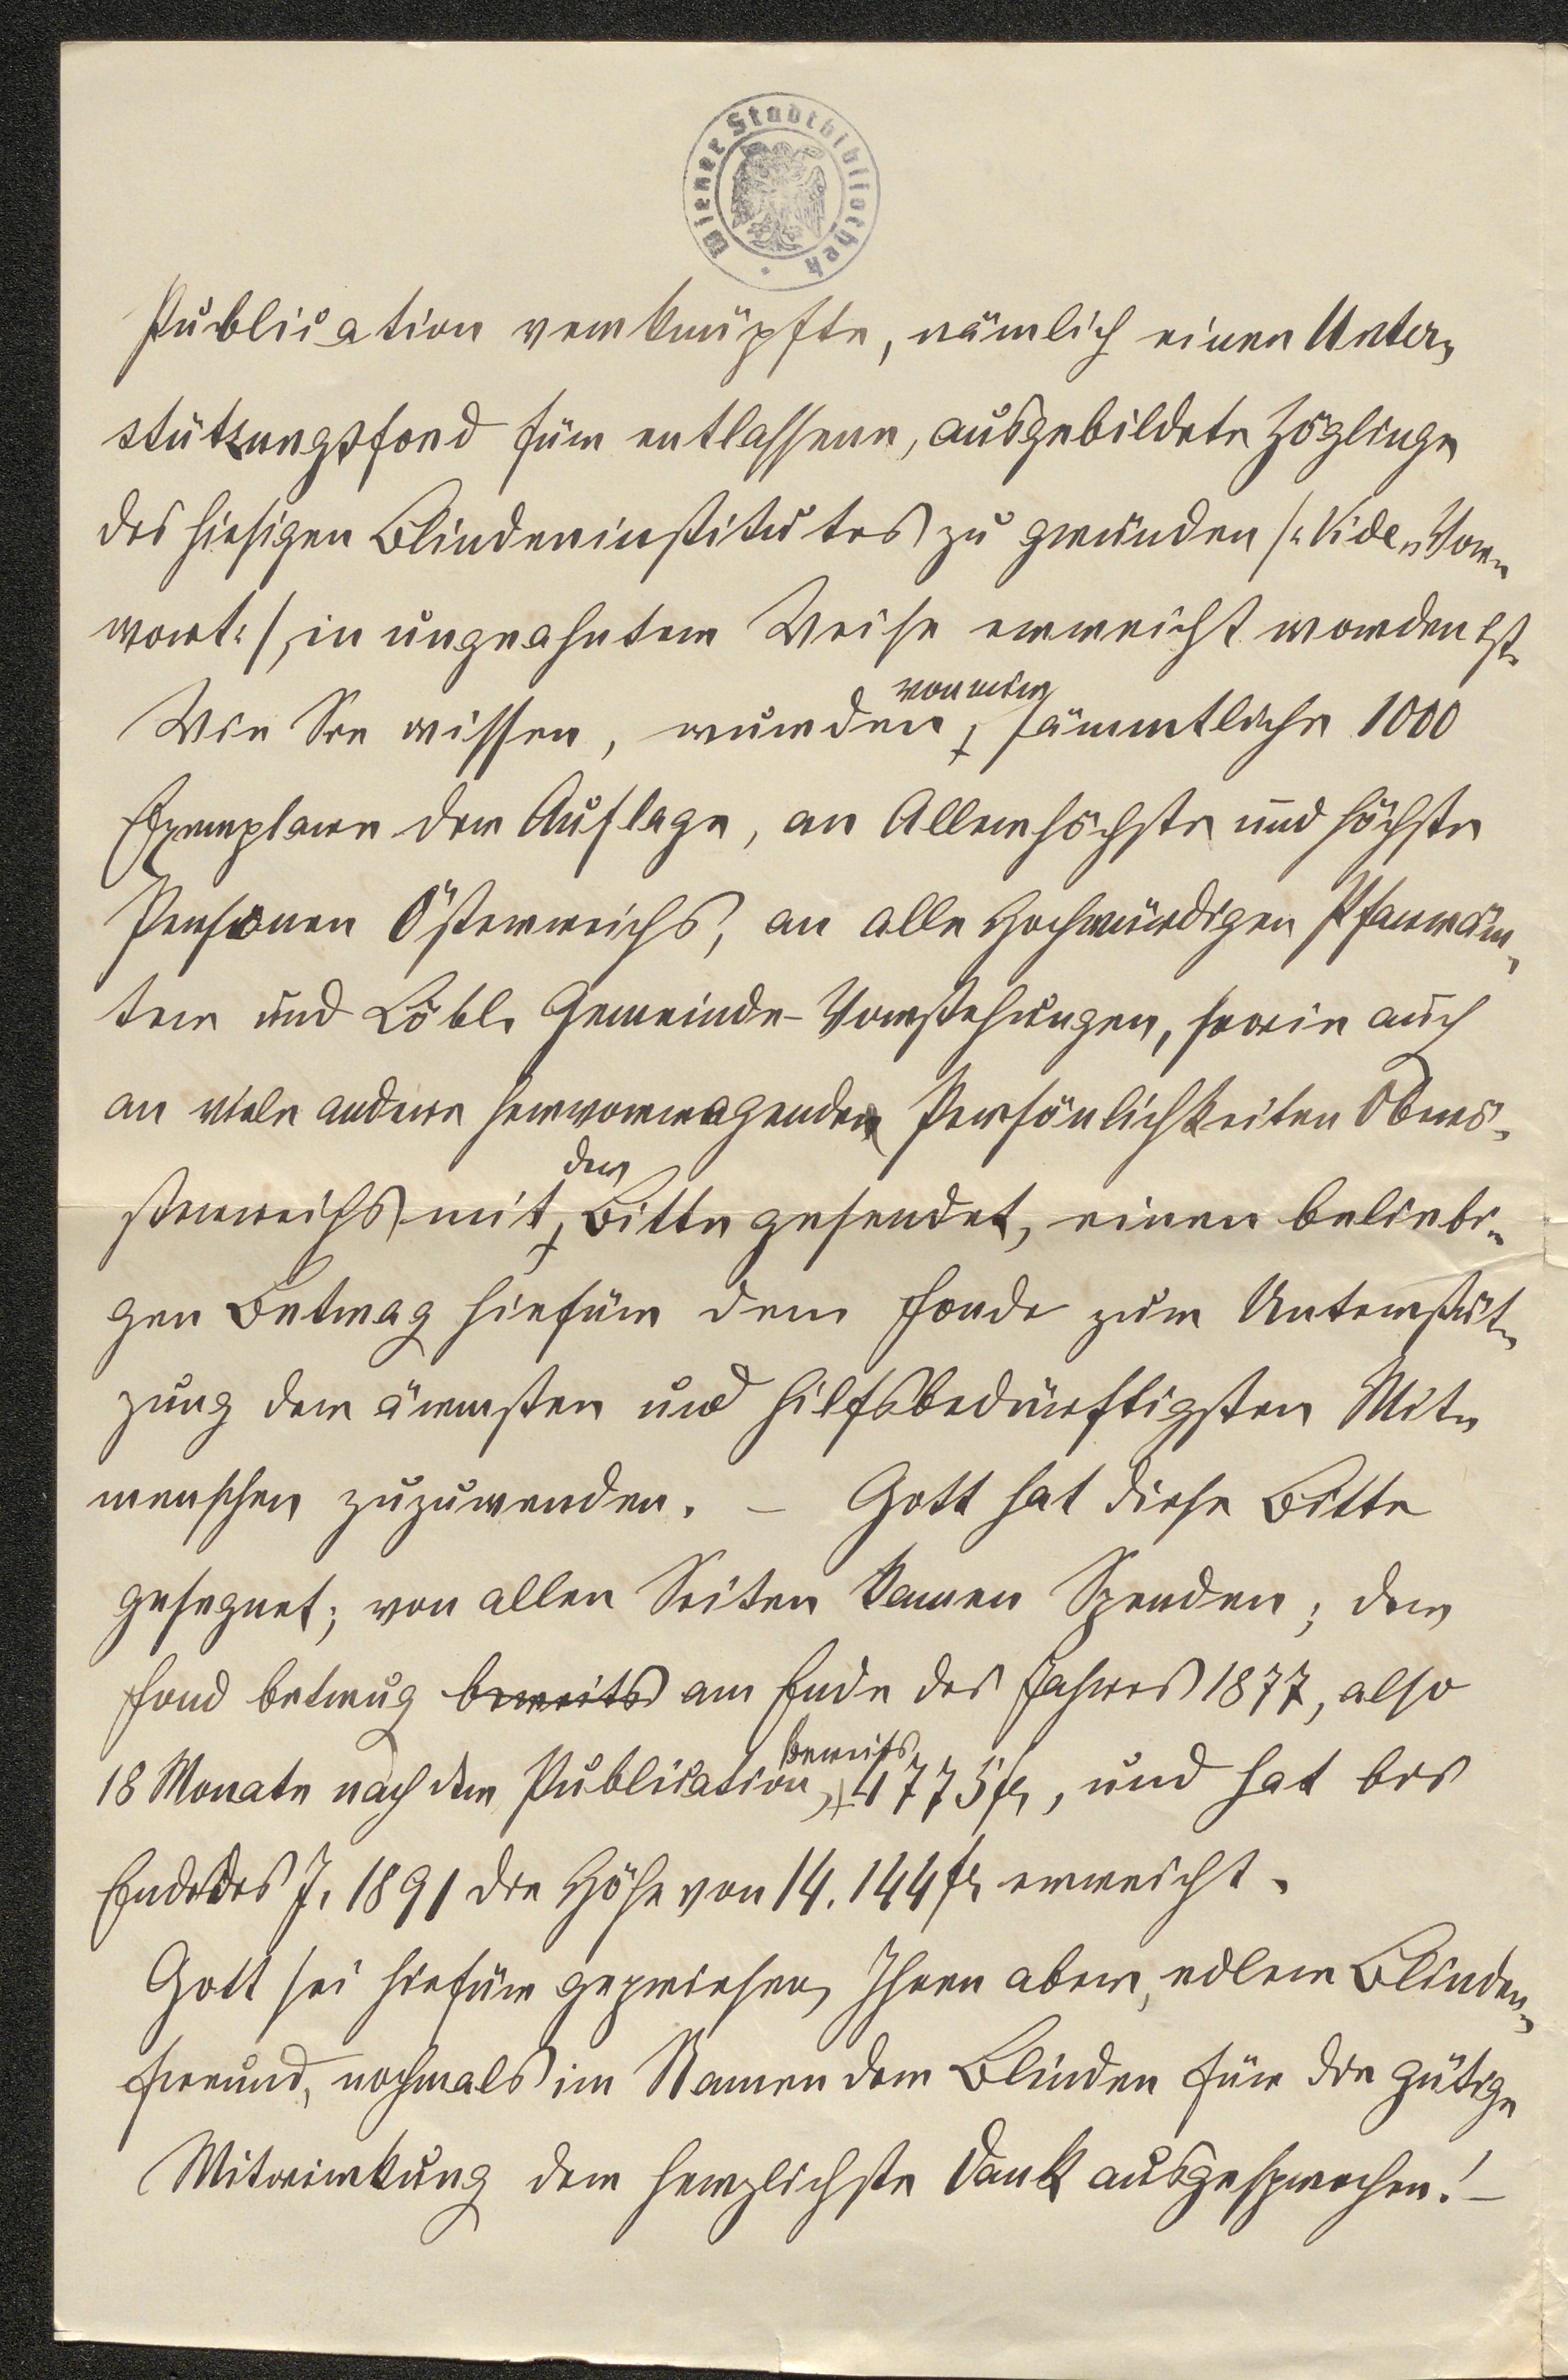 Wiener Stadtbibliothek
Publication verknüpfte, nämlich einen Unter-
stützungsfond für entlassene, ausgebildete Zöglinge
des hiesigen Blindeninstitutes zu gründen /: Vide „Vor-
wort :/, in ungeahnter Weise erreicht worden ist.
von mir
Wie Sie wissen, wurden sämmtliche 1000
Exemplare der Auflage, an Allerhöchste und höchste
Personen Österreichs, an alle Hochwürdigen Pfarräm-
ter und Löbl. Gemeinde-Vorstehungen, sowie auch
an viele andere hervorragende Persönlichkeiten Oberö-
der
sterreichs mit Bitte gesendet, einen beliebi-
gen Betrag hiefür dem Fonde zur Unterstüt-
zung der ärmsten und hilfsbedürftigsten Mit-
menschen zuzuwenden. – Gott hat diese Bitte
gesegnet; von allen Seiten kamen Spenden; der
Fond betrug bereits am Ende des Jahres 1877, also
bereits
18 Monate nach der Publication, 4775 fl, und hat bis
Ende des J. 1891 die Höhe von 14.144 fl erreicht.
Gott sei hiefür gepriesen, Ihnen aber, edler Blinden-
freund, nochmals im Namen der Blinden für die gütige
Mitwirkung der herzlichste Dank ausgesprochen! –